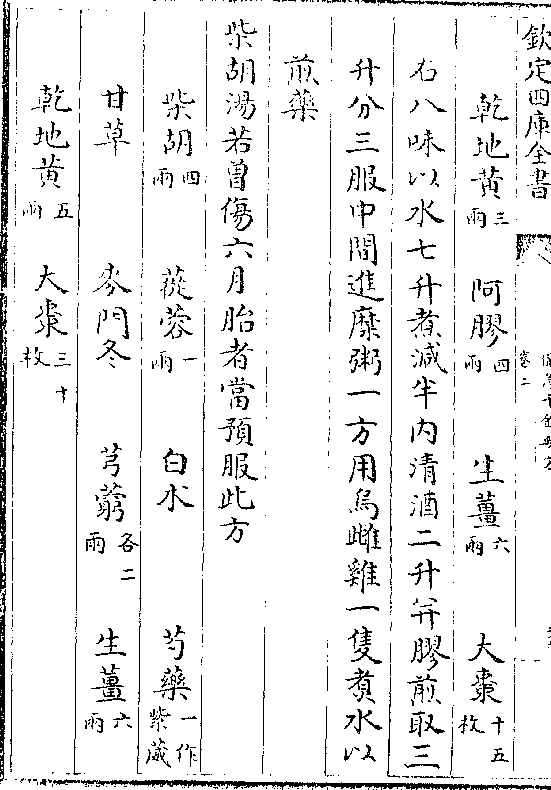 欽定四庫全書
卷二
乾地黄三兩 阿膠四兩 生薑六兩 大棗十五枚
右八味以水七升煮減半内清酒二升并膠煎取三
升分三服中間進糜粥一方用烏雌雞一隻煑水以
煎藥
柴胡湯若曾傷六月胎者當預服此方
柴胡四兩 蓯蓉一兩 白朮 芍藥一作紫葳
甘草 麥門冬 芎藭各二兩 生薑六兩
乾地黄五兩 大棗三十枚